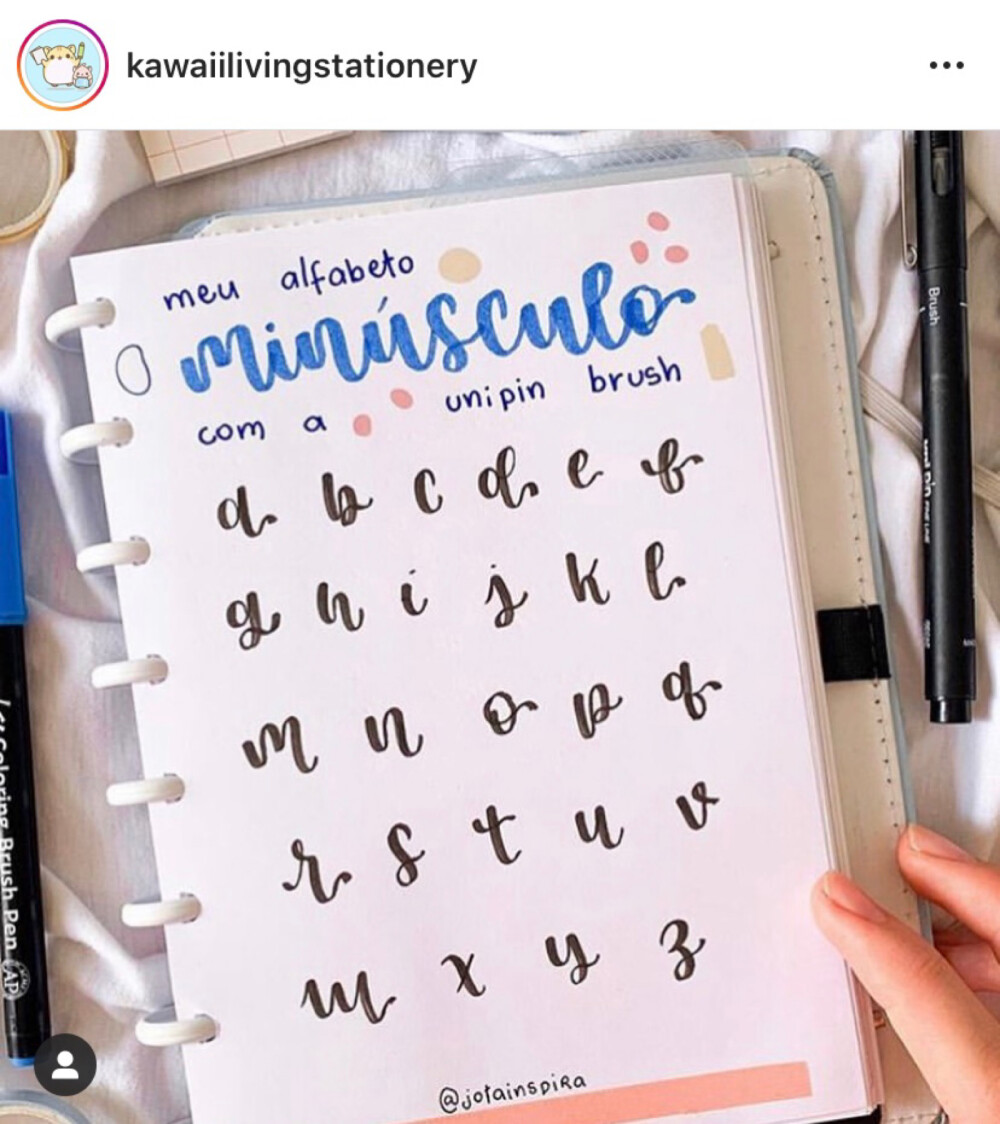 kawaiilivingstationery
meu alfabeto
minúsculo
com a unipin brush
a b c d e f
g h i j k l
m n o p q
r s t u v
w x y z
@jotainspira
Brush
Coloring Brush Pen
AP